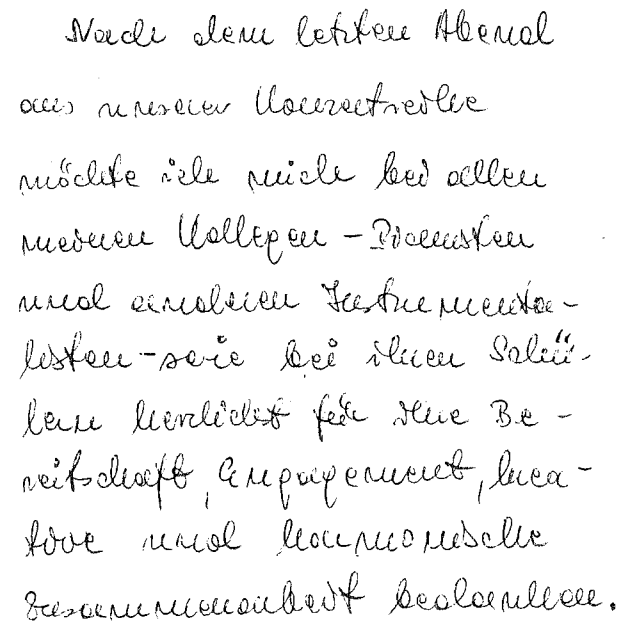 Nach dem letzten Abend
aus unserer Konzertreihe
möchte ich mich bei allen
meinen Kollegen - Pianisten
und anderen Instrumenta-
listen - sowie bei ihnen Schü-
lern herzlichst für ihre Be-
reitschaft, Engagement, krea-
tive und harmonische
Zusammenarbeit bedanken.